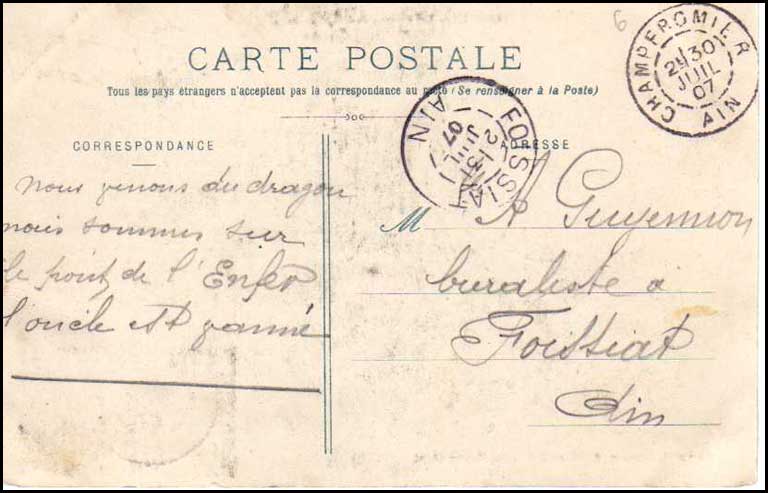 6
CARTE POSTALE
Tous les pays étrangers n'acceptent pas la correspondance au recto (Se renseigner à la Poste)
CORRESPONDANCE
ADRESSE
CHAMPFROMIER
30
JUIL
07
AIN
FOISSIAT
31
JUIL
07
AIN
Nous venons du dragon
nous sommes sur
le point de l'Enfer
l'oncle est vanné
M A Guyennon
buraliste à
Foissiat
Ain